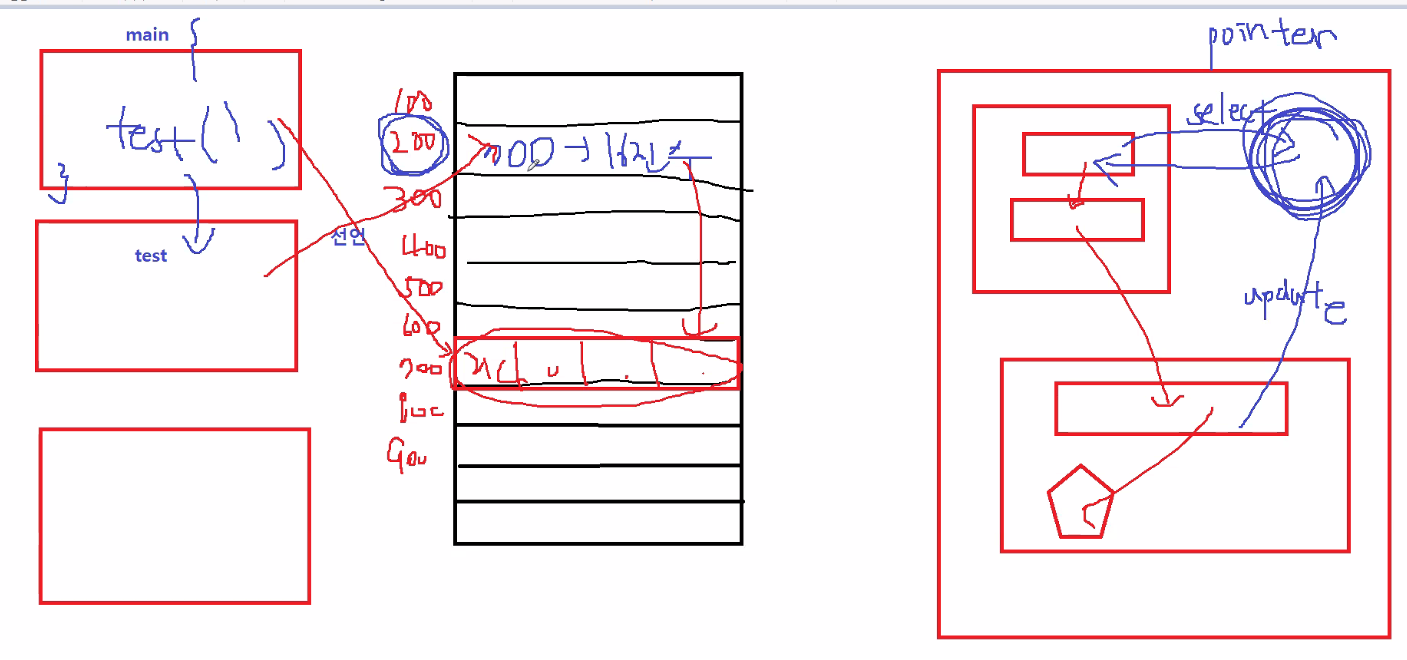 main
test( )
}
test
선언
100
200
300
400
500
600
700
800
900
700 →
pointer
select
update